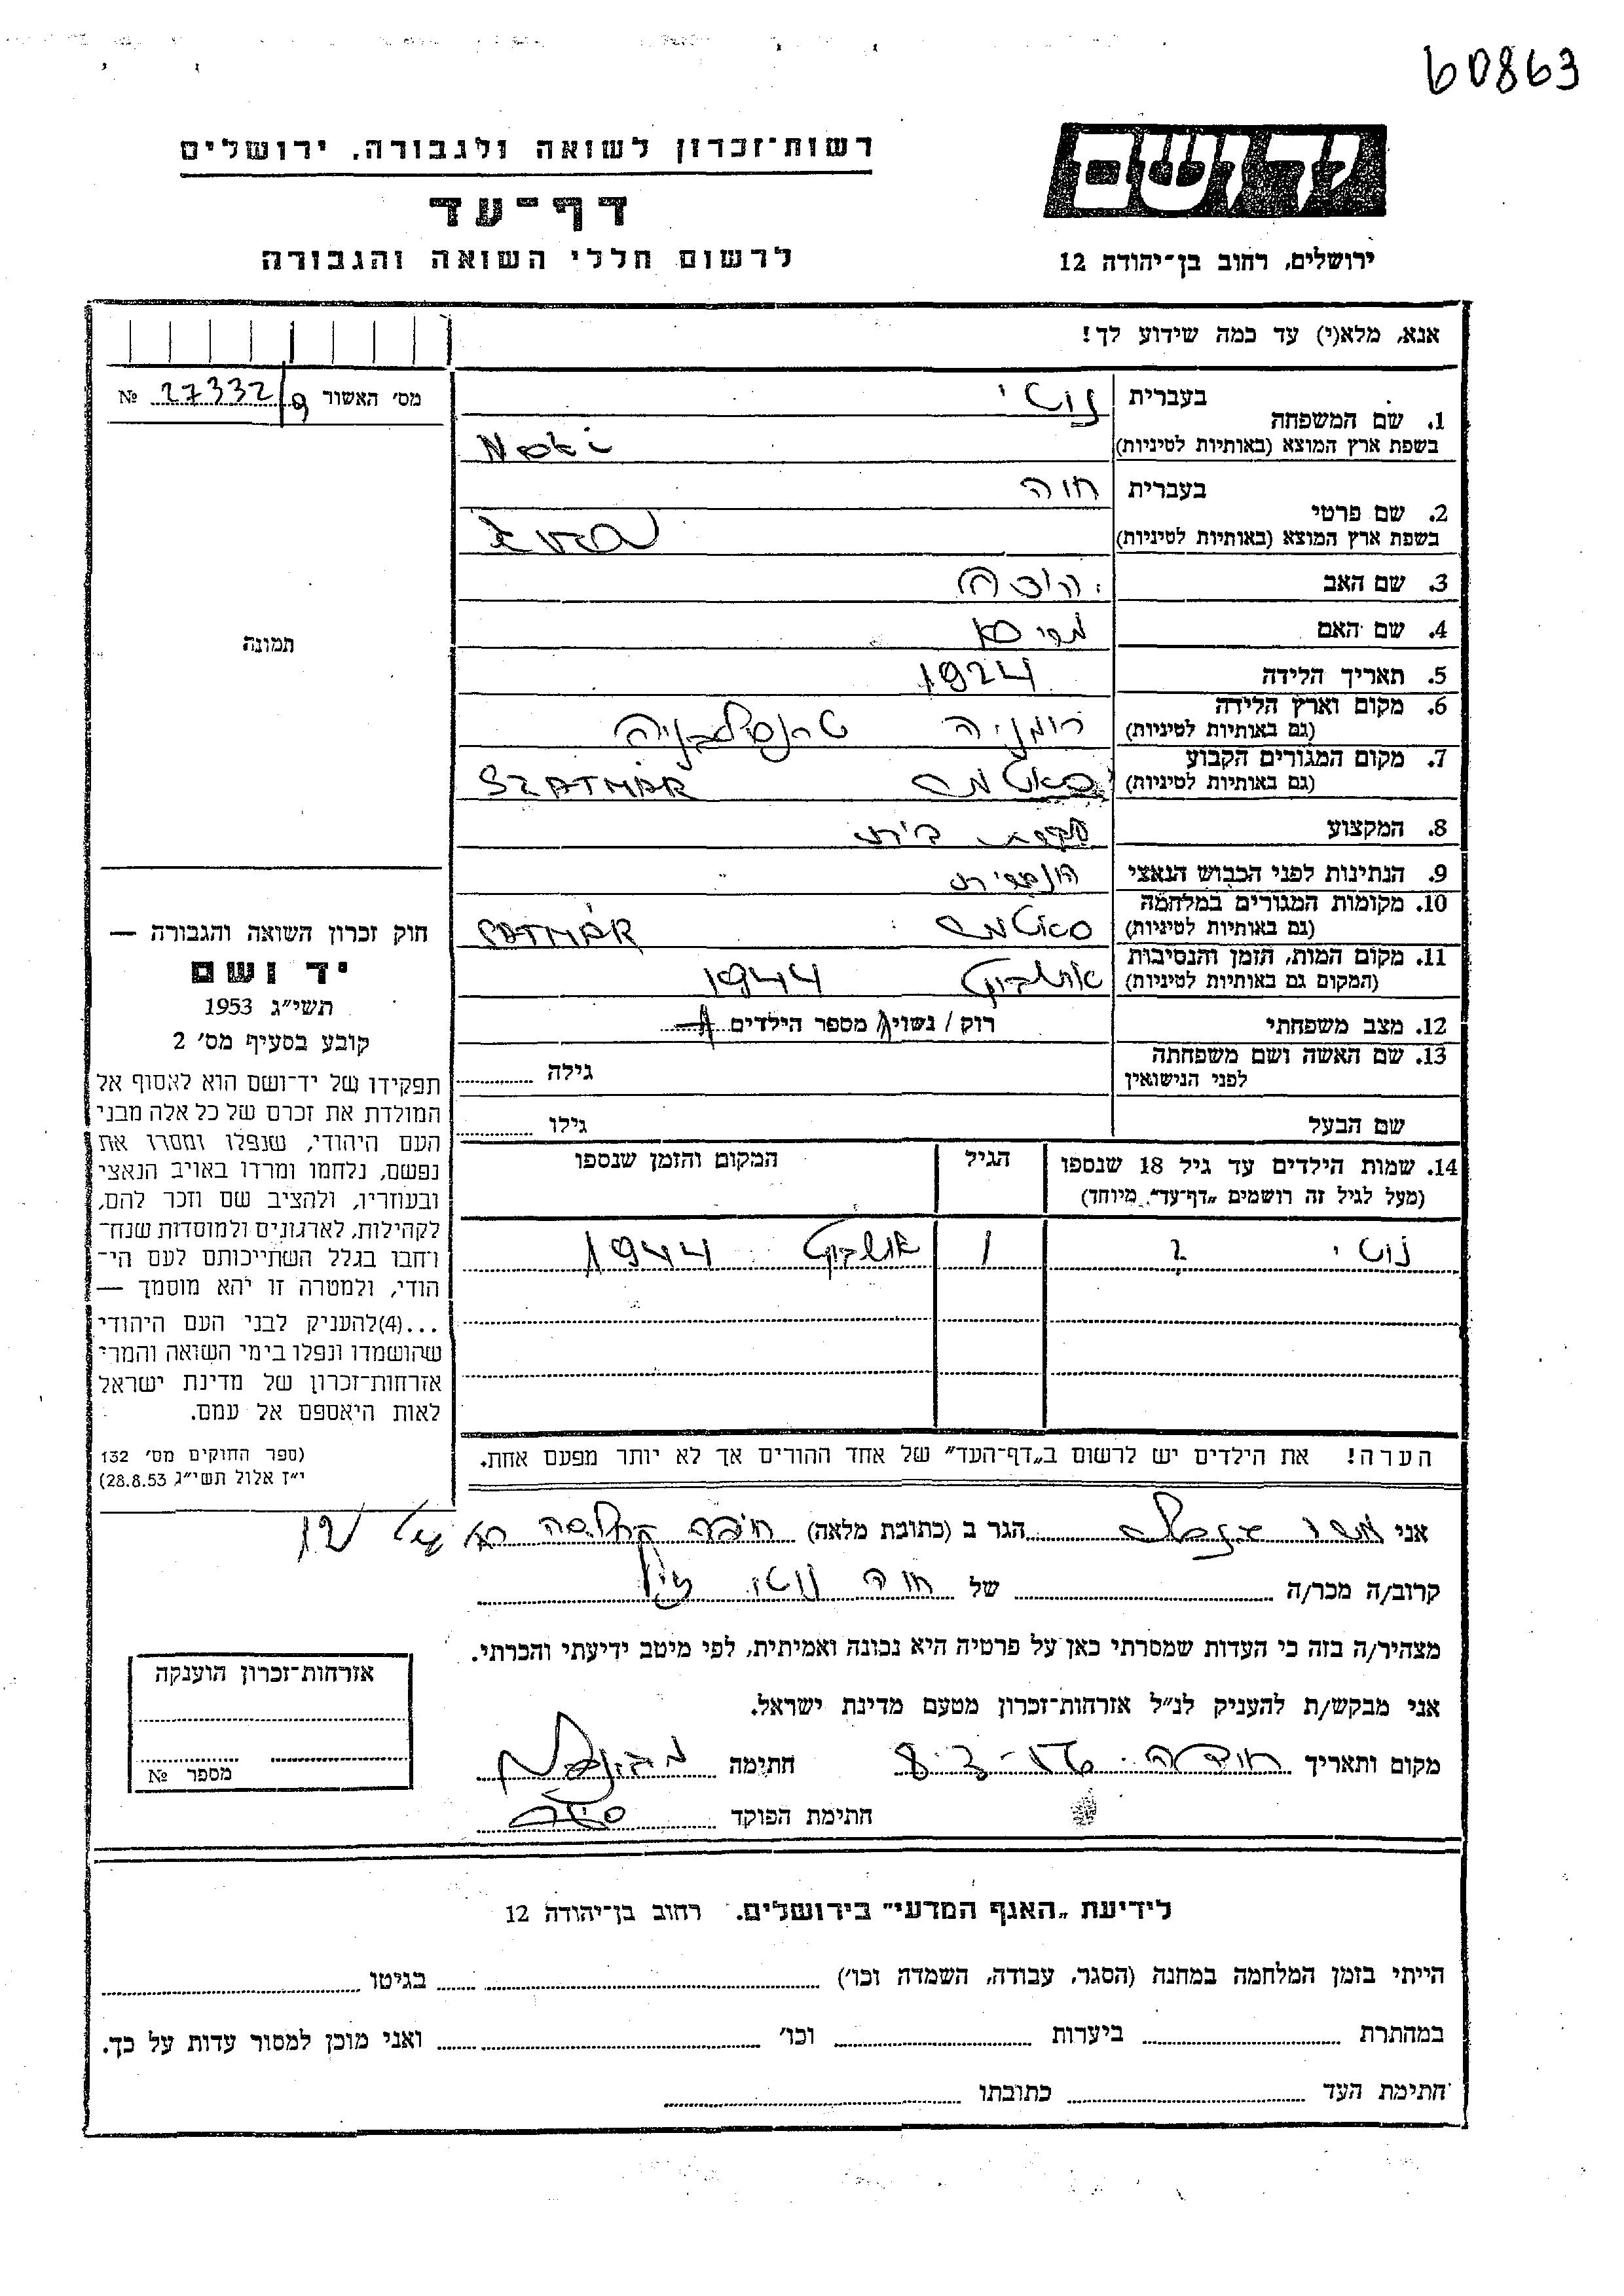 60863
יד ושם
רשות־זכרון לשואה ולגבורה, ירושלים
דף־עד
לרשום חללי השואה והגבורה
ירושלים, רחוב בן־יהודה 12
אנא, מלא(י) עד כמה שידוע לך!
מס' האשור 27332/9 №
1. שם המשפחה
בעברית
בשפת ארץ המוצא (באותיות לטיניות)
2. שם פרטי
בעברית חוה
בשפת ארץ המוצא (באותיות לטיניות) Eva
3. שם האב
4. שם האם
5. תאריך הלידה 1924
6. מקום וארץ הלידה רומניה טרנסילבניה
(גם באותיות לטיניות)
7. מקום המגורים הקבוע סאטמר SZATMÁR
(גם באותיות לטיניות)
8. המקצוע עקרת בית
9. הנתינות לפני הכבוש הנאצי הונגרית
10. מקומות המגורים במלחמה סאטמר SATMÁR
(גם באותיות לטיניות)
11. מקום המות, הזמן והנסיבות אושביץ 1944
(המקום גם באותיות לטיניות)
12. מצב משפחתי רווק / נשוי/א מספר הילדים 1
13. שם האשה ושם משפחתה
לפני הנישואין
גילה
שם הבעל
גילו
14. שמות הילדים עד גיל 18 שנספו
(מעל לגיל זה רושמים „דף־עד” מיוחד)
הגיל
המקום והזמן שנספו
? 1 אושביץ 1944
הערה! את הילדים יש לרשום ב„דף־העד” של אחד ההורים אך לא יותר מפעם אחת.
תמונה
חוק זכרון השואה והגבורה —
יד ושם
תשי״ג 1953
קובע בסעיף מס' 2
תפקידו של יד־ושם הוא לאסוף אל
המולדת את זכרם של כל אלה מבני
העם היהודי, שנפלו ומסרו את
נפשם, נלחמו ומרדו באויב הנאצי
ובעוזריו, ולהציב שם וזכר להם,
לקהילות, לארגונים ולמוסדות שנח־
רחבו בגלל השתייכותם לעם הי־
הודי, ולמטרה זו יהא מוסמך —
...(4)להעניק לבני העם היהודי
שהושמדו ונפלו בימי השואה והמרי
אזרחות־זכרון של מדינת ישראל
לאות היאספם אל עמם.
(ספר החוקים מס' 132
י״ז אלול תשי״ג 28.8.53)
אני הגר ב (כתובת מלאה)
קרוב/ה מכר/ה של חוה
מצהיר/ה בזה כי העדות שמסרתי כאן על פרטיה היא נכונה ואמיתית, לפי מיטב ידיעתי והכרתי.
אני מבקש/ת להעניק לנ״ל אזרחות־זכרון מטעם מדינת ישראל.
מקום ותאריך חתימה
חתימת הפוקד
אזרחות־זכרון הוענקה
מספר №
לידיעת „האגף המדעי” בירושלים. רחוב בן־יהודה 12
הייתי בזמן המלחמה במחנה (הסגר, עבודה, השמדה וכו') בגיטו
במהתרת ביערות וכו' ואני מוכן למסור עדות על כך.
חתימת העד כתובתו